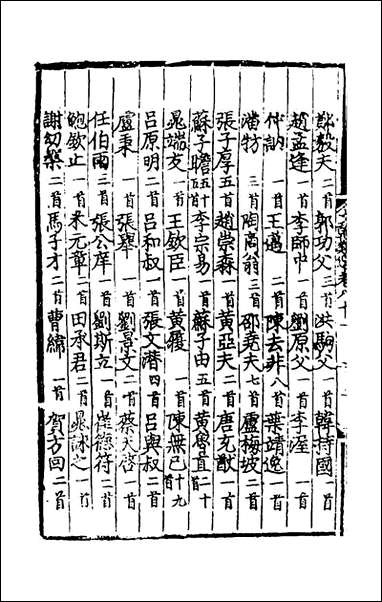 鄭毅夫二首郭功父三首洪駒父一首韓持國一首
趙孟逢一首李師中一首劉原父一首李一首
仲訥一首王邁二首陳去非八首葉靖逸一首
潘牥三首陶商翁三首邵堯夫七首盧梅坡二首
張子厚五首趙崇森一首黃亞夫二首唐一首
蘇子瞻五十首李宗易一首蘇子由五首黃魯直二十首
晁端友一首王欽臣一首黃履一首陳無已十九首
呂原明二首呂和叔一首張文潛四首呂與叔二首
盧秉一首張舉一首劉景文二首蔡天啓一首
任伯雨三首張公庠一首劉斯立一首崔德符二首
鮑欽止一首米元章二首田承君二首晁詠之一首
謝幼槃二首馬子才二首曹緯一首賀方回二首